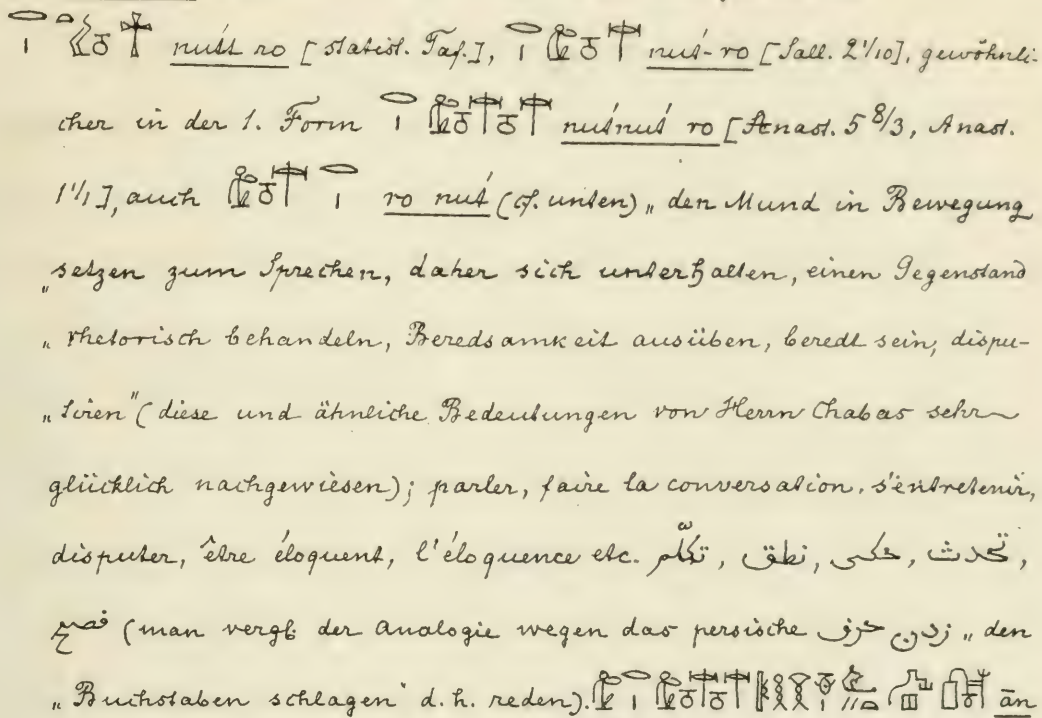 𓂋𓏤 nuśt ro [statist. Taf.], nuś-ro [Sall. 2 1/10], gewöhnli-
cher in der 1. Form nuśnuś ro [Anast. 5 8/3, Anast.
1 1/1], auch ro nuś (cf. unten) „den Mund in Bewegung
„setzen zum Sprechen, daher sich unterhalten, einen Gegenstand
„rhetorisch behandeln, Beredsamkeit ausüben, beredt sein, dispu-
„tiren" (diese und ähnliche Bedeutungen von Herrn Chabas sehr
glücklich nachgewiesen); parler, faire la conversation, s'entretenir,
disputer, être éloquent, l'éloquence etc. تكلّم, نطق, حكى, تحدث,
فصح (man vergl. der Analogie wegen das persische حرف زدن „den
„Buchstaben schlagen" d. h. reden). ān